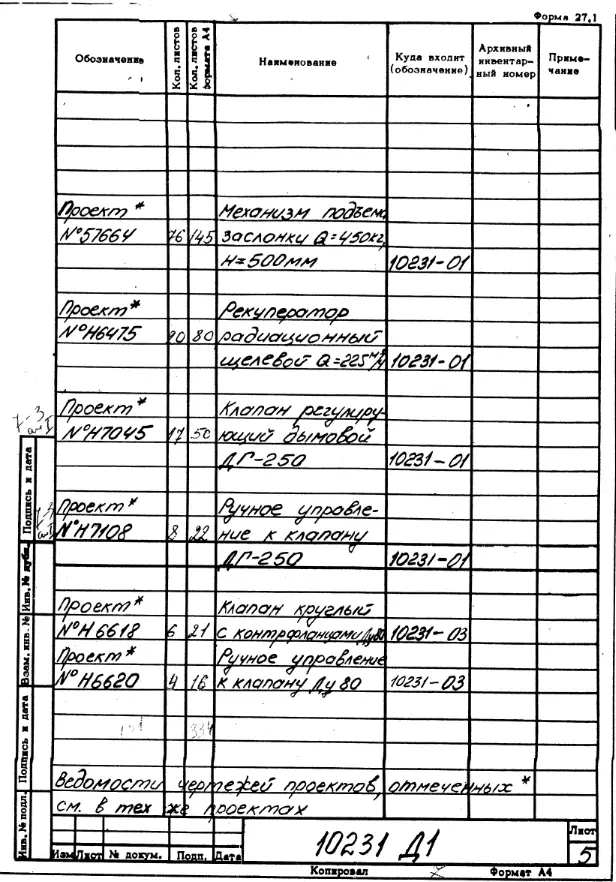 Форма 27.1
Обозначение
Кол. листов
Кол. листов формата А4
Наименование
Куда входит (обозначение)
Архивный инвентар-ный номер
Приме-чание
Проект * Механизм подъема
№57664 76 145 заслонки Q=450кг,
H=500мм 10231-01
Проект * Рекуператор
№Н6475 20 80 радиационный
щелевой Q=225м³/ч 10231-01
Проект * Клапан регулиру-
№Н7045 17 50 ющий дымовой
ДГ-250 10231-01
Проект * Ручное управле-
№Н7108 8 22 ние к клапану
ДГ-250 10231-01
Проект * Клапан круглый
№Н6618 6 21 с контрфланцами Ду80 10231-03
Проект * Ручное управление
№Н6620 4 16 к клапану Ду 80 10231-03
334
Ведомости чертежей проектов, отмеченных *
см. в тех же проектах
Инв. № подл. Подпись и дата Взам. инв. № Инв. № дубл. Подпись и дата
Изм Лист № докум. Подп. Дата
10231 Д1
Лист
5
Копировал Формат А4